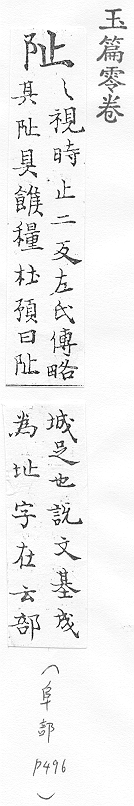 玉篇零卷
阯
〻視時止二反左氏傳略
其阯具餱糧杜預曰阯
城足也說文基或
為址字在云部
(阜部 p496)